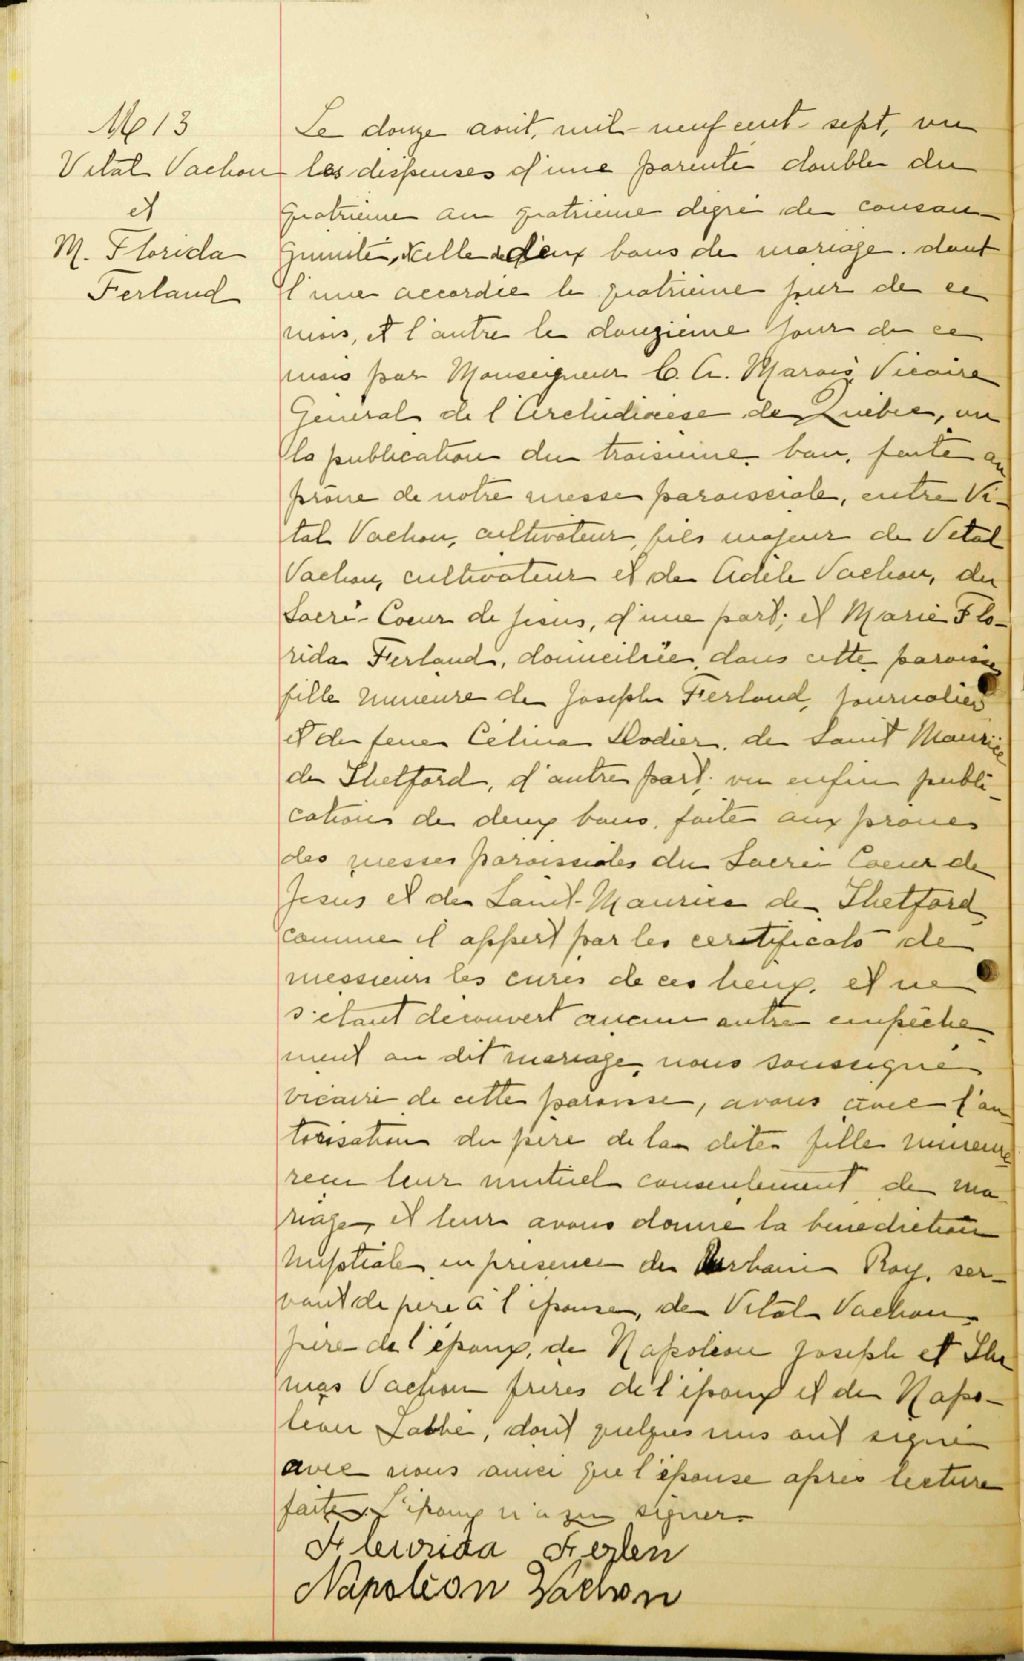 M 13
Vital Vachon
et
M. Florida
Ferland
Le douze août, mil-neuf cent-sept, vu
les dispenses d'une parenté double du
quatrième au quatrième dégré de consan-
guinité, et celle de deux bans de mariage. dont
l'une accordée le quatrième jour de ce
mois, et l'autre le douzième jour de ce
mois par Monseigneur C. A. Marois, Vicaire
Général de l'Archidiocèse de Québec, vu
la publication du troisième ban, faite au
prône de notre messe paroissiale, entre Vi-
tal Vachon, cultivateur, fils majeur de Vital
Vachon, cultivateur et de Adèle Vachon, du
Sacré-Coeur de Jésus, d'une part; et Marie Flo-
rida Ferland, domiciliée, dans cette paroisse
fille mineure de Joseph Ferland, journalier
et de feue Célina Dodier, de Saint Maurice
de Thetford, d'autre part; vu enfin publi-
cations de deux bans, faite aux prônes
des messes paroissiales du Sacré Coeur de
Jésus et de Saint-Maurice de Thetford,
comme il appert par les certificats de
messieurs les curés de ces lieux, et ne
s'étant découvert aucun autre empêche-
ment au dit mariage, nous soussigné
vicaire de cette paroisse, avons avec l'au-
torisation du père de la dite fille mineure
reçu leur mutuel consentement de ma-
riage, et leur avons donné la bénédiction
nuptiale en présence de Urbain Roy, ser-
vant de père à l'épouse, de Vital Vachon,
père de l'époux, de Napoléon Joseph et Tho
mas Vachon frères de l'époux et de Napo-
léon Labbé, dont quelques uns ont signé
avec nous ainsi que l'épouse après lecture
faite. L'époux n'a su signer.
Fleurida Ferlen
Napoléon Vachon